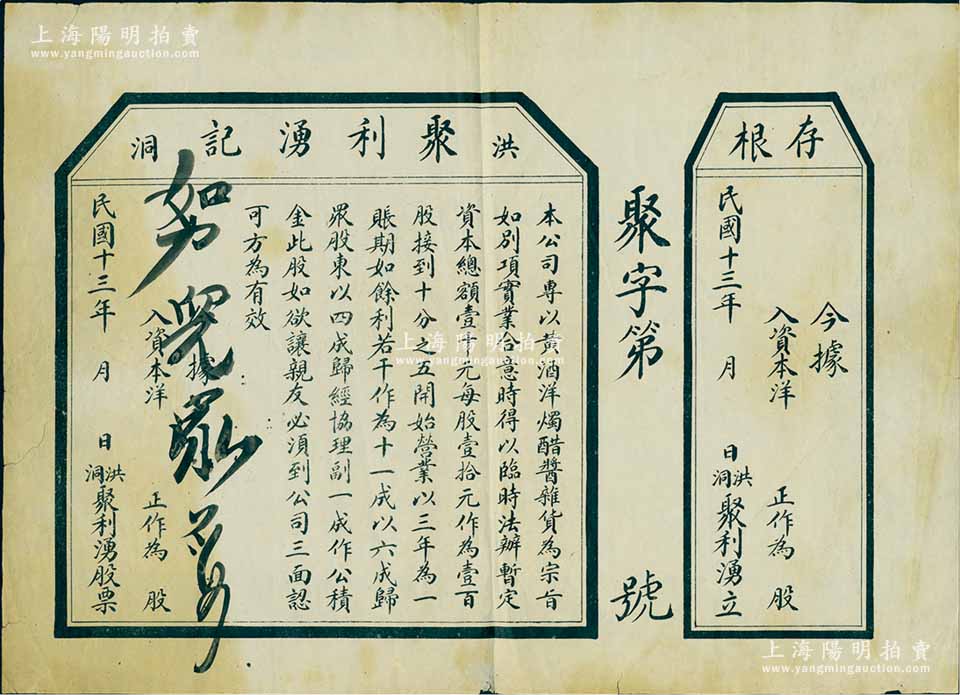 上海陽明拍賣
www.yangmingauction.com
存根
今據
入資本洋 正作為 股
民國十三年 月 日洪洞聚利湧立
聚字第 號
洪洞 聚利湧記
本公司專以黃酒洋燭醋醬雜貨為宗旨
如別項實業合意時得以臨時法辦暫定
資本總額壹千元每股壹拾元作為壹百
股接到十分之五開始營業以三年為一
賬期如餘利若干作為十一成以六成歸
眾股東以四成歸經協理副一成作公積
金此股如欲讓親友必須到公司三面認
可方為有效
據
入資本洋 正作為 股
民國十三年 月 日洪洞聚利湧股票
上海陽明拍賣
www.yangmingauction.com
上海陽明拍賣
www.yangmingauction.com